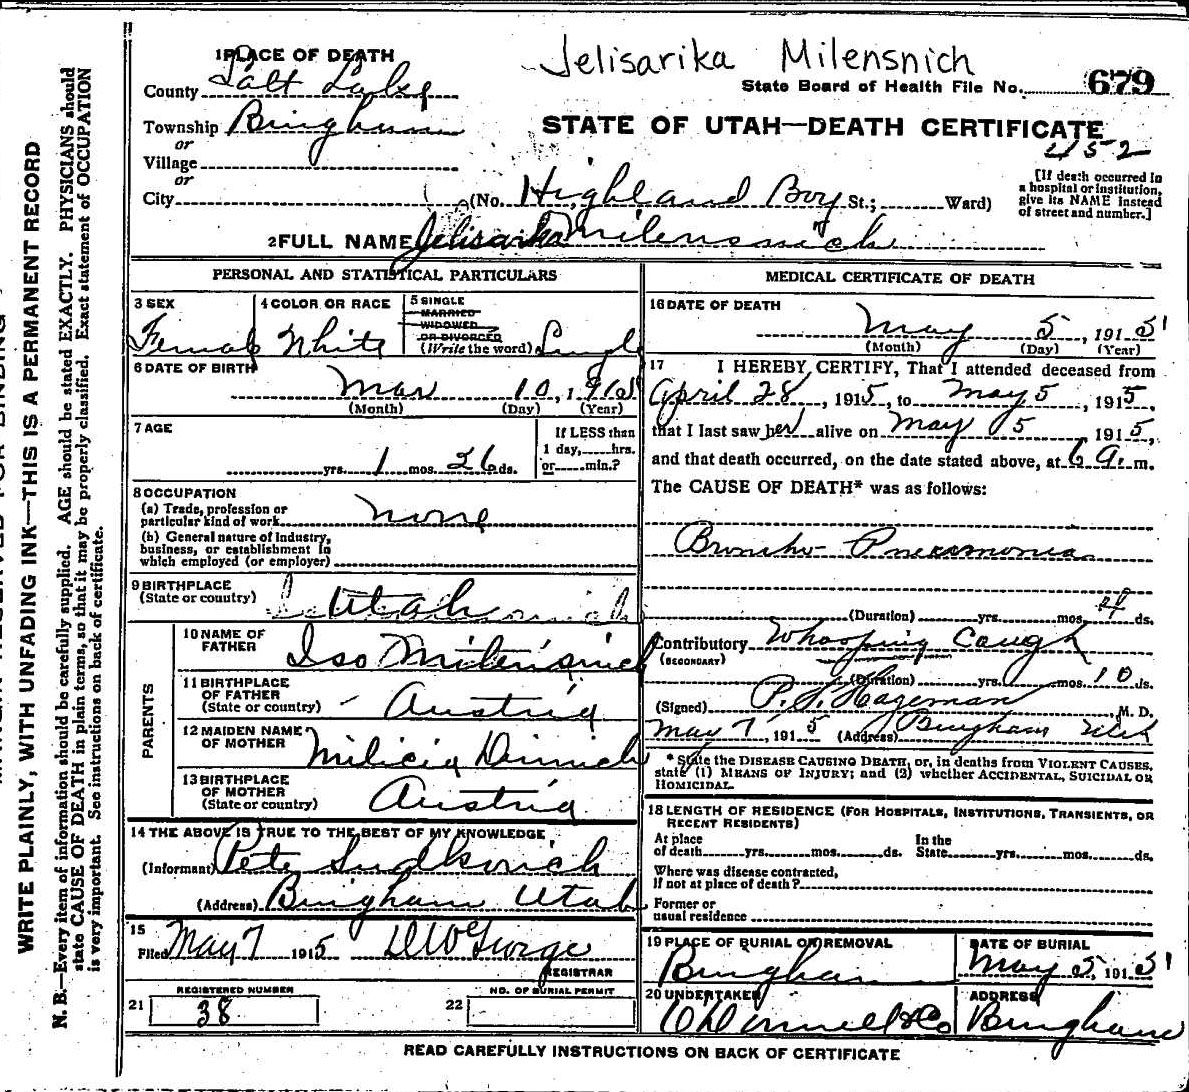 Jelisarika Milensnich
1 PLACE OF DEATH
State Board of Health File No. 679
County Salt Lake
STATE OF UTAH—DEATH CERTIFICATE
Township Bingham
452
or
Village
or
City
(No. Highland Boy St.; Ward)
[If death occurred in a hospital or institution, give its NAME instead of street and number.]
2 FULL NAME Jelisarika Milensnich
PERSONAL AND STATISTICAL PARTICULARS
3 SEX
Female
4 COLOR OR RACE
White
5 SINGLE
MARRIED
WIDOWED
OR DIVORCED
(Write the word) Single
6 DATE OF BIRTH
Mar 10, 1915
(Month) (Day) (Year)
7 AGE
yrs. 1 mos. 26 ds.
If LESS than
1 day, hrs.
or min.?
8 OCCUPATION
(a) Trade, profession or
particular kind of work None
(b) General nature of industry,
business, or establishment in
which employed (or employer)
9 BIRTHPLACE
(State or country) Utah
PARENTS
10 NAME OF
FATHER Iso Milensnich
11 BIRTHPLACE
OF FATHER
(State or country) Austria
12 MAIDEN NAME
OF MOTHER Milicia
13 BIRTHPLACE
OF MOTHER
(State or country) Austria
14 THE ABOVE IS TRUE TO THE BEST OF MY KNOWLEDGE
(Informant) Pete
(Address) Bingham Utah
15
Filed May 7 1915 George
REGISTRAR
REGISTERED NUMBER
21 38
NO. OF BURIAL PERMIT
22
MEDICAL CERTIFICATE OF DEATH
16 DATE OF DEATH
May 5, 1915
(Month) (Day) (Year)
17 I HEREBY CERTIFY, That I attended deceased from
April 28, 1915, to May 5, 1915,
that I last saw her alive on May 5 1915,
and that death occurred, on the date stated above, at 6 a. m.
The CAUSE OF DEATH* was as follows:
Broncho Pneumonia
(Duration) yrs. mos. 4 ds.
Contributory Whooping Cough
(SECONDARY)
(Duration) yrs. mos. 10 ds.
(Signed) P. S. Hageman, M. D.
May 7, 1915 (Address) Bingham Utah
* State the DISEASE CAUSING DEATH, or, in deaths from VIOLENT CAUSES,
state (1) MEANS OF INJURY; and (2) whether ACCIDENTAL, SUICIDAL OR
HOMICIDAL.
18 LENGTH OF RESIDENCE (FOR HOSPITALS, INSTITUTIONS, TRANSIENTS, OR
RECENT RESIDENTS)
At place In the
of death yrs. mos. ds. State yrs. mos. ds.
Where was disease contracted,
If not at place of death?
Former or
usual residence
19 PLACE OF BURIAL OR REMOVAL
Bingham
DATE OF BURIAL
May 5, 1915
20 UNDERTAKER
O'Donnell & Co
ADDRESS
Bingham
READ CAREFULLY INSTRUCTIONS ON BACK OF CERTIFICATE
WRITE PLAINLY, WITH UNFADING INK—THIS IS A PERMANENT RECORD
N. B.—Every item of information should be carefully supplied. AGE should be stated EXACTLY. PHYSICIANS should
state CAUSE OF DEATH in plain terms, so that it may be properly classified. Exact statement of OCCUPATION
is very important. See instructions on back of certificate.